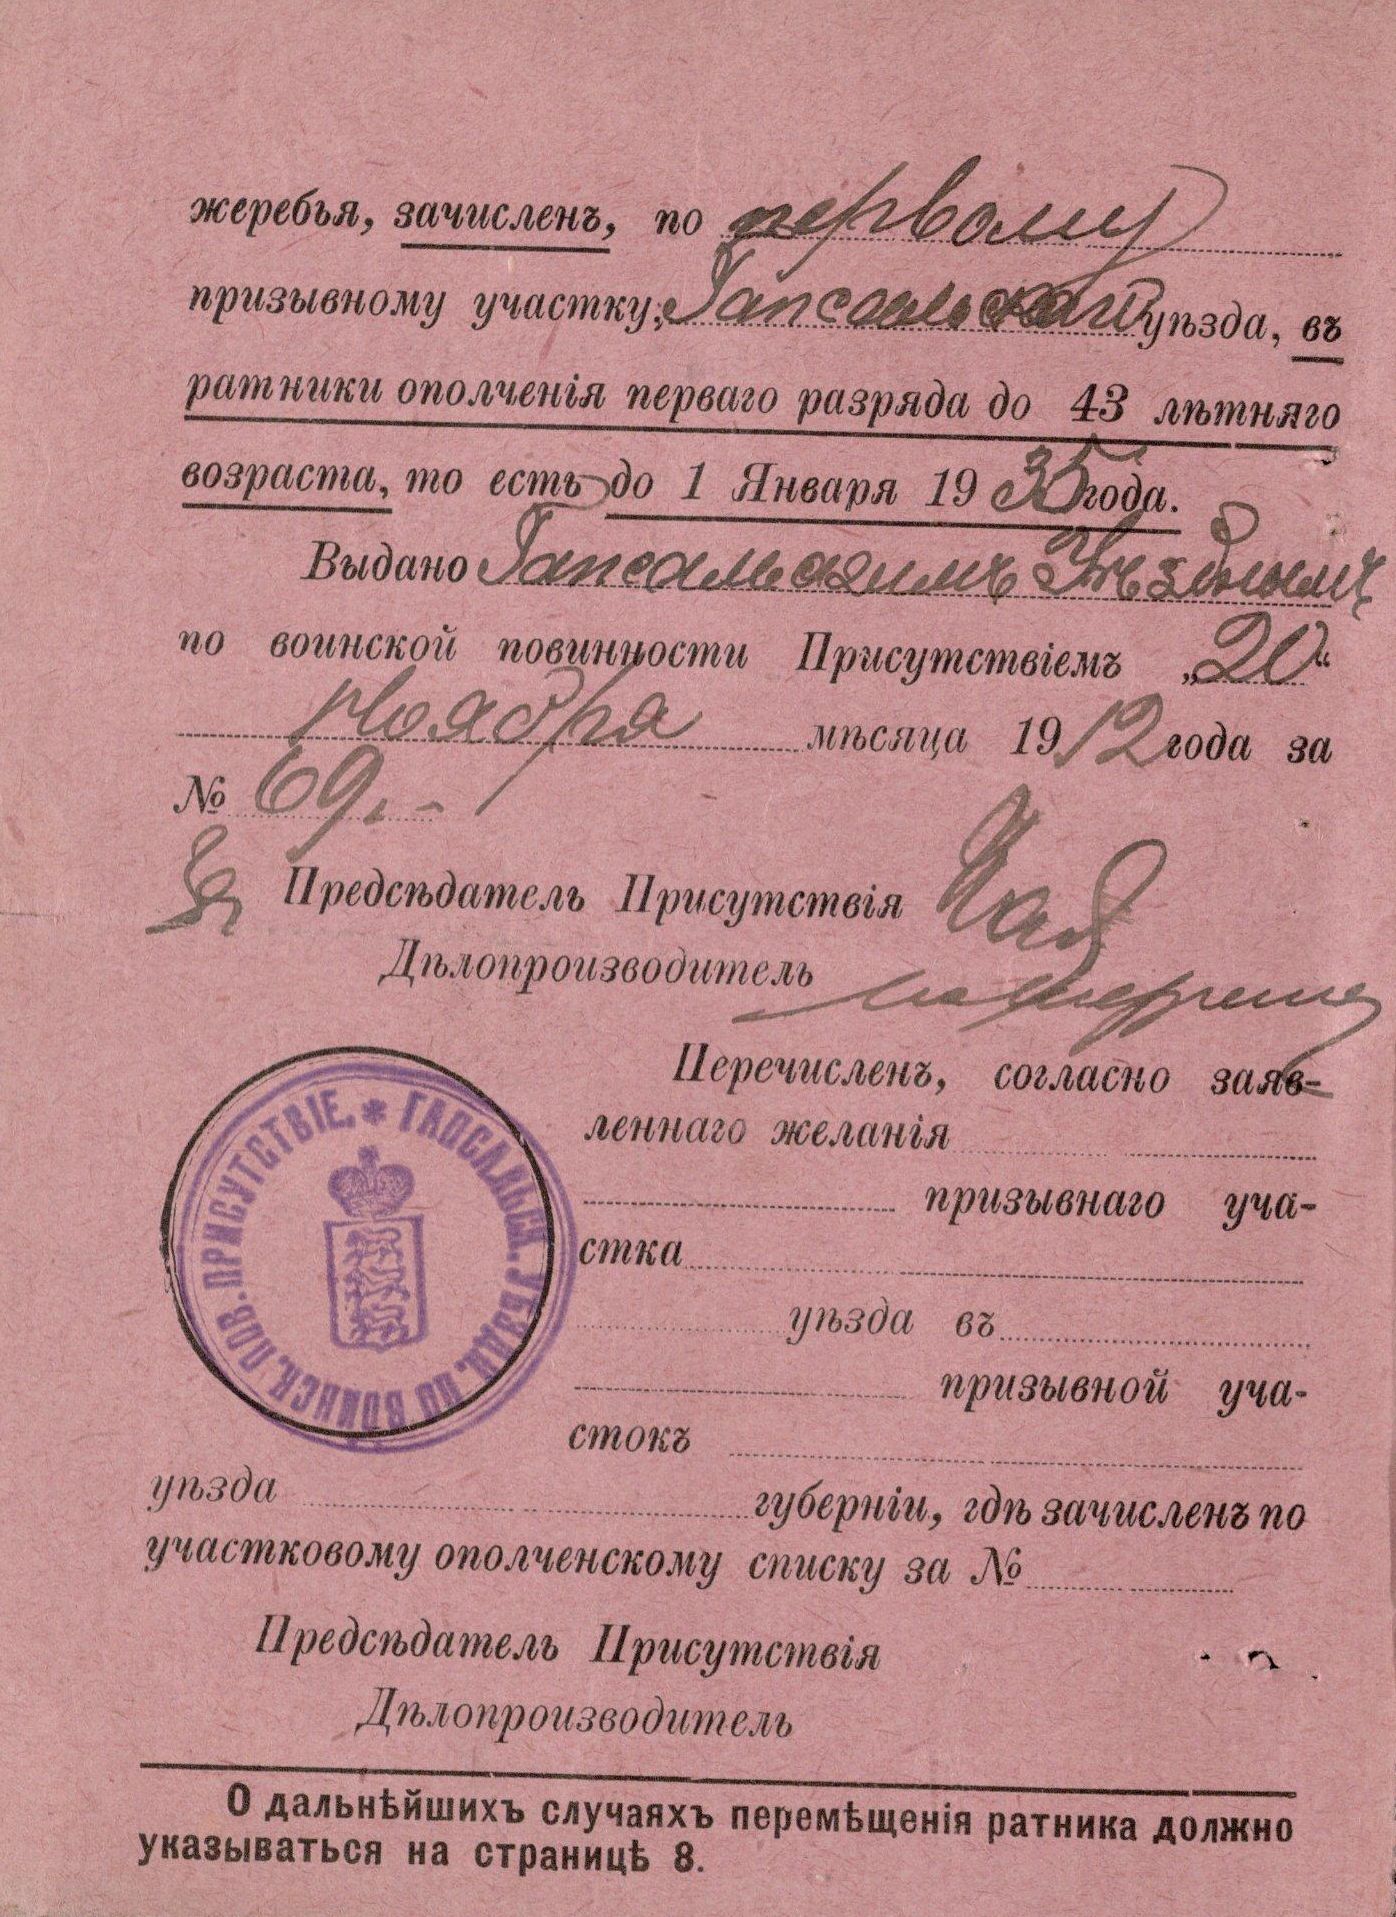 жеребья, зачисленъ, по первому
призывному участку, Гапсальскаго уѣзда, въ
ратники ополченія перваго разряда до 43 лѣтняго
возраста, то есть до 1 Января 1935 года.
Выдано Гапсальскимъ Уѣзднымъ
по воинской повинности Присутствіемъ „20“
Ноября мѣсяца 1912 года за
№ 69.-
За Предсѣдатель Присутствія
Дѣлопроизводитель
Перечисленъ, согласно заяв-
леннаго желанія
призывнаго уча-
стка
уѣзда въ
призывной уча-
стокъ
уѣзда губерніи, гдѣ зачисленъ по
участковому ополченскому списку за №
Предсѣдатель Присутствія
Дѣлопроизводитель
О дальнѣйшихъ случаяхъ перемѣщенія ратника должно
указываться на страницѣ 8.
* ГАПСАЛЬСК. УѢЗДН. ПО ВОИНСК. ПОВ. ПРИСУТСТВІЕ.